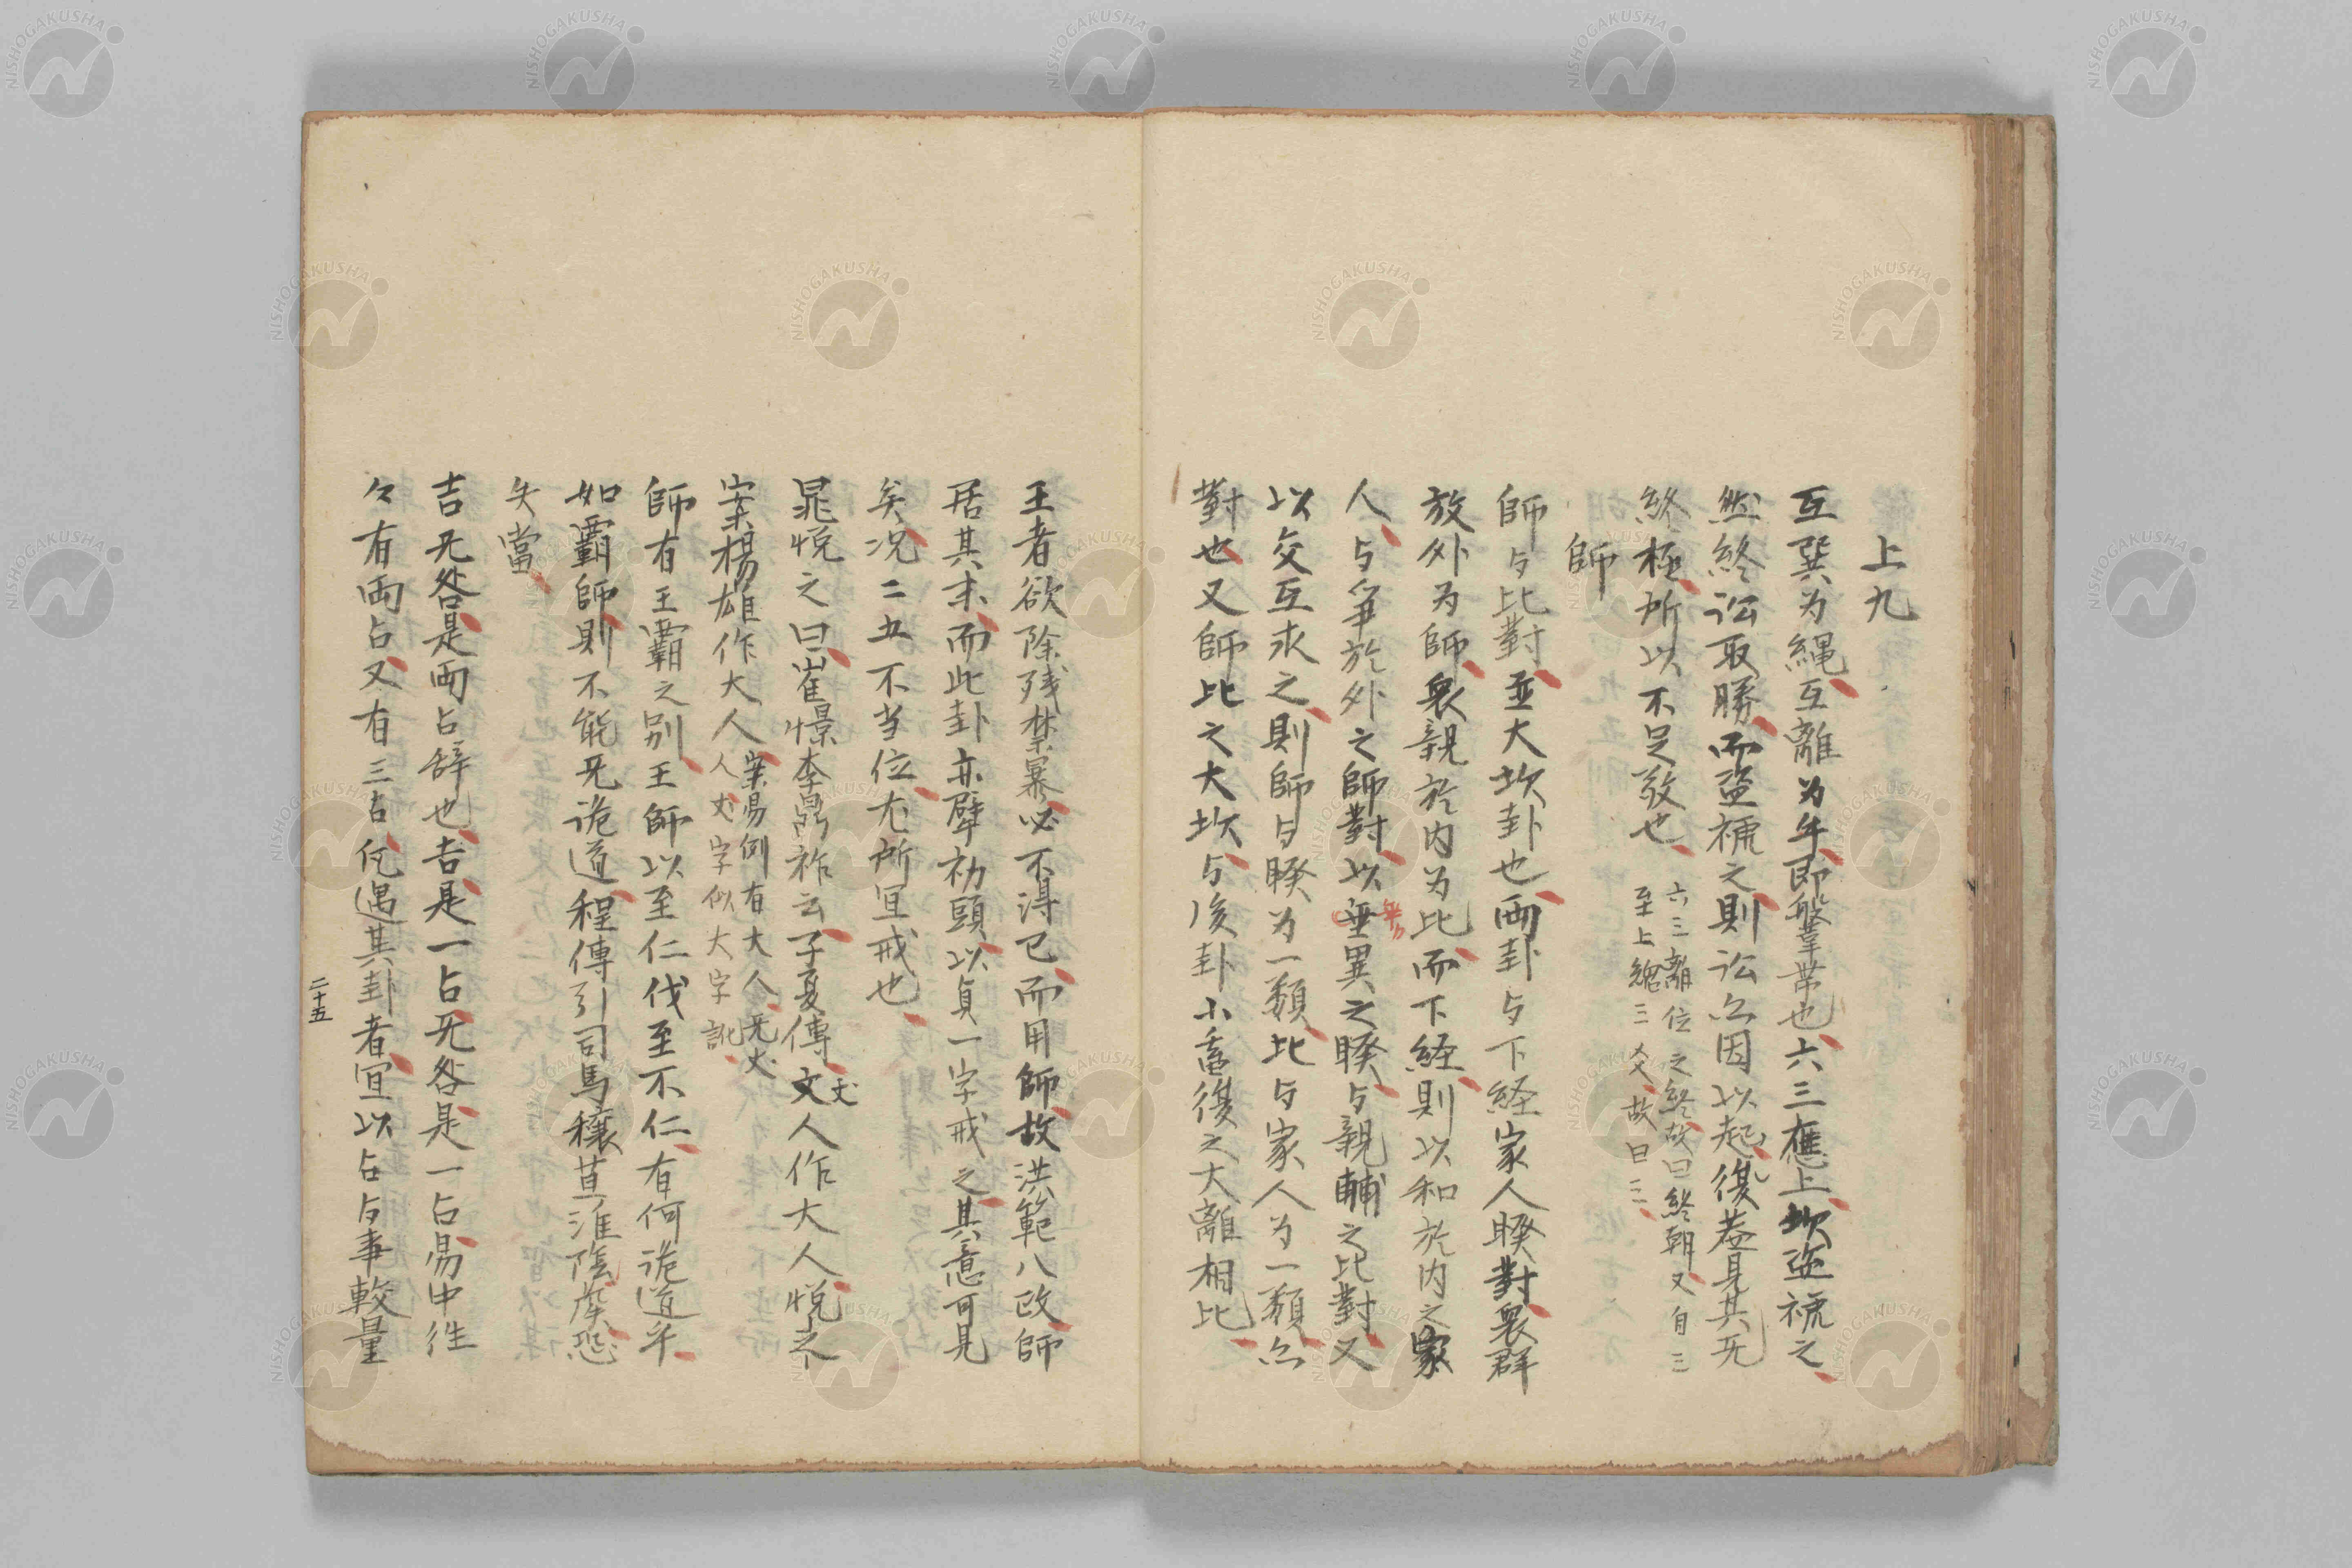 上九
互巽为縄互離为牛即鞶革帯也六三應上坎盗褫之
然終訟取勝而盗褫之則訟亦因以起復蓋見其无
終極所以不足敬也
六三離位之終故曰終朝又自三
至上總三爻故曰三
師
師与比對並大坎卦也両卦与下経家人睽對衆群
放外为師衆親於内为比而下経則以和於内之家
人与争於外之師對以乖異之睽与親輔之比對又
以交互求之則師与睽为一類比与家人为一類亦
對也又師比之大坎与後卦小畜復之大離相比
王者欲除残禁暴必不得已而用師故洪範八政師
居其末而此卦亦劈初頭以貞一字戒之其意可見
矣况二五不当位尤所宜戒也
晁悦之曰崔憬李鼎祚云子夏傳丈人作大人悦之
案楊雄作大人
案易例有大人无丈
人丈字似大字訛
師有王霸之别王師以至仁伐至不仁有何詭道乎
如霸師則不能无詭道程傳引司馬穰苴淮陰侯恐
失當
吉无咎是両占辞也吉是一占无咎是一占易中往
々有両占又有三占凡遇其卦者宜以占与事較量
二十五
NISHOGAKUSHA